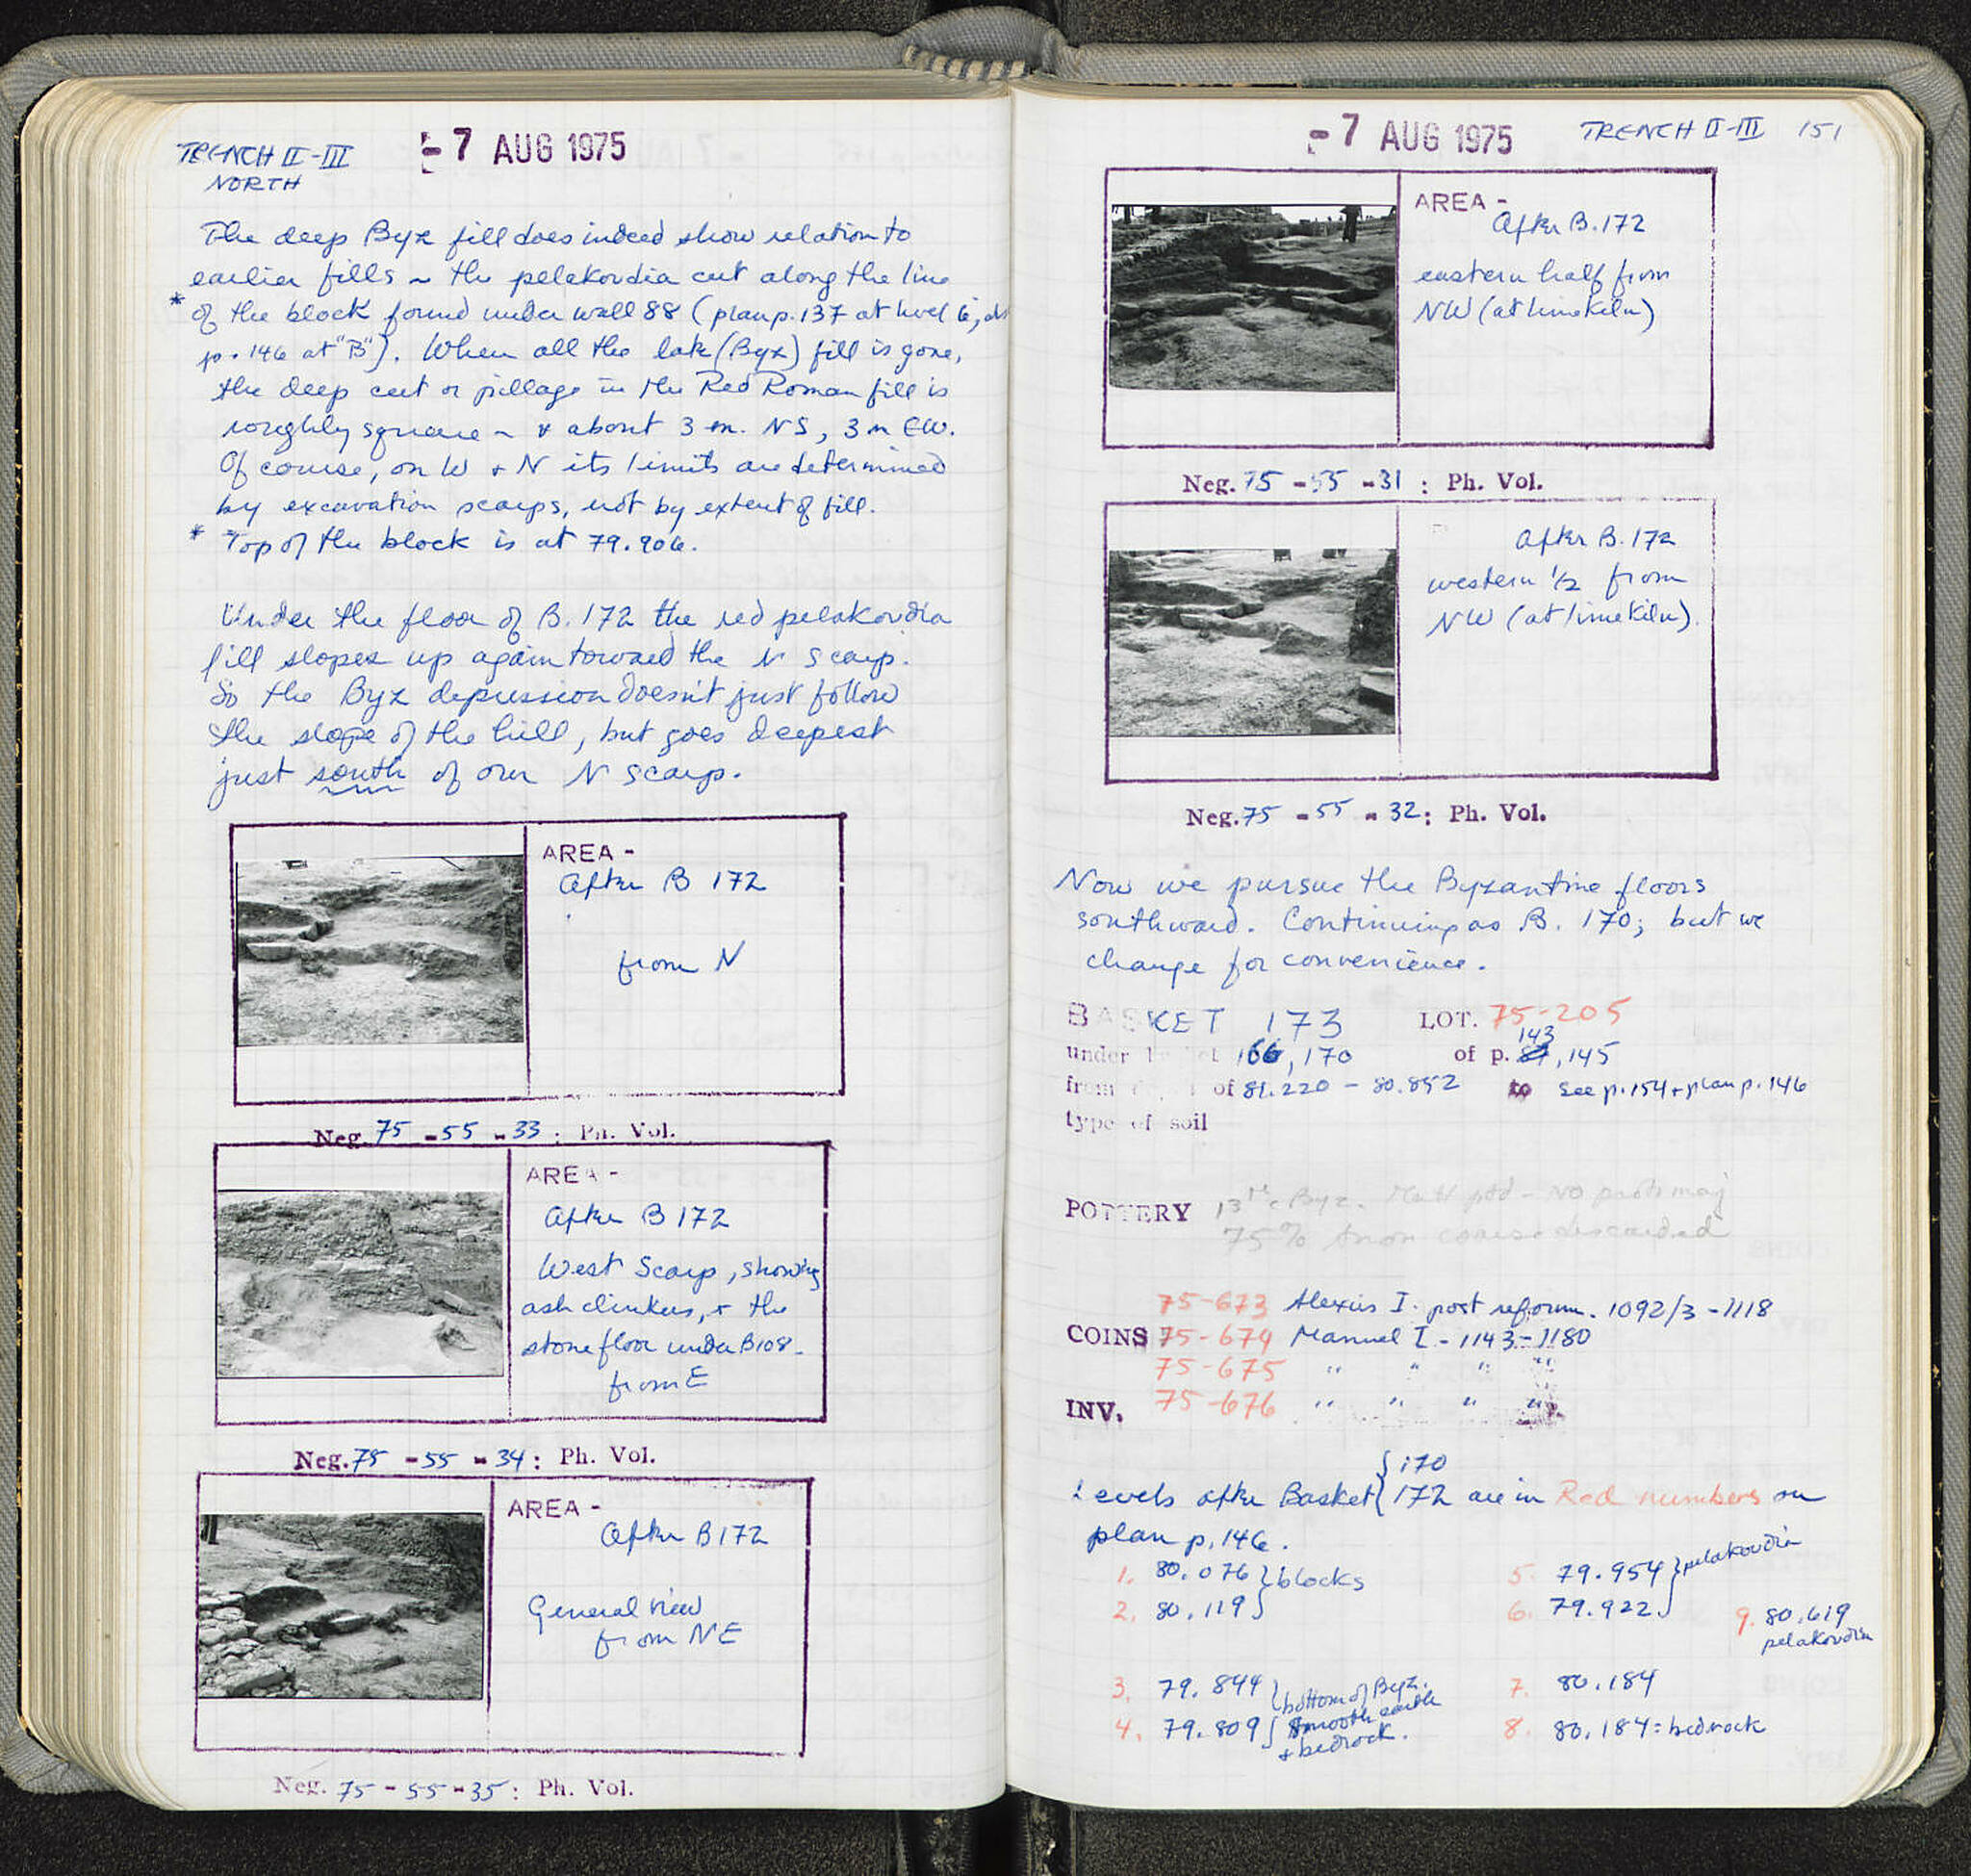 TRENCH II-III
NORTH
-7 AUG 1975
The deep Byz fill does indeed show relation to
earlier fills ~ the pelakoudia cut along the line
* of the block found under wall 88 (plan p. 137 at level 6, also
p. 146 at "B"). When all the late (Byz) fill is gone,
the deep cut or pillage in the Red Roman fill is
roughly square ~ about 3 m. NS, 3 m EW.
Of course, on W + N its limits are determined
by excavation scarps, not by extent of fill.
* Top of the block is at 79.906.
Under the floor of B. 172 the red pelakoudia
fill slopes up again toward the N scarp.
So the Byz depression doesn't just follow
the slope of the hill, but goes deepest
just south of our N scarp.
AREA -
After B 172
from N
Neg. 75 - 55 - 33 : Ph. Vol.
AREA -
After B 172
West Scarp, showing
ash clinkers, + the
stone floor under B108-
from E
Neg. 75 - 55 - 34 : Ph. Vol.
AREA -
After B 172
General view
from NE
Neg. 75 - 55 - 35 : Ph. Vol.
-7 AUG 1975
TRENCH II-III 151
AREA -
After B. 172
eastern half from
NW (at limekiln)
Neg. 75 - 55 - 31 : Ph. Vol.
After B. 172
western 1/2 from
NW (at limekiln).
Neg. 75 - 55 - 32 : Ph. Vol.
Now we pursue the Byzantine floors
southward. Continuing as B. 170; but we
change for convenience.
BASKET 173 LOT. 75-205
under 166, 170 of p. 143, 145
from of 81.220 - 80.852 to see p. 154 + plan p. 146
type of soil
POTTERY 13th c Byz. - No
75% coarse discarded
75-673 Alexius I. post reform. 1092/3 - 1118
COINS 75-674 Manuel I - 1143-1180
75-675 " " " "
INV. 75-676 " " " "
Levels after Basket { 170
172 are in Red numbers on
plan p. 146.
1. 80.076 } blocks
2. 80.119
3. 79.844 } bottom of Byz.
4. 79.809 smooth earth
+ bedrock.
5. 79.954 } pelakoudia
6. 79.922
7. 80.184
8. 80.184 = bedrock
9. 80.619
pelakoudia